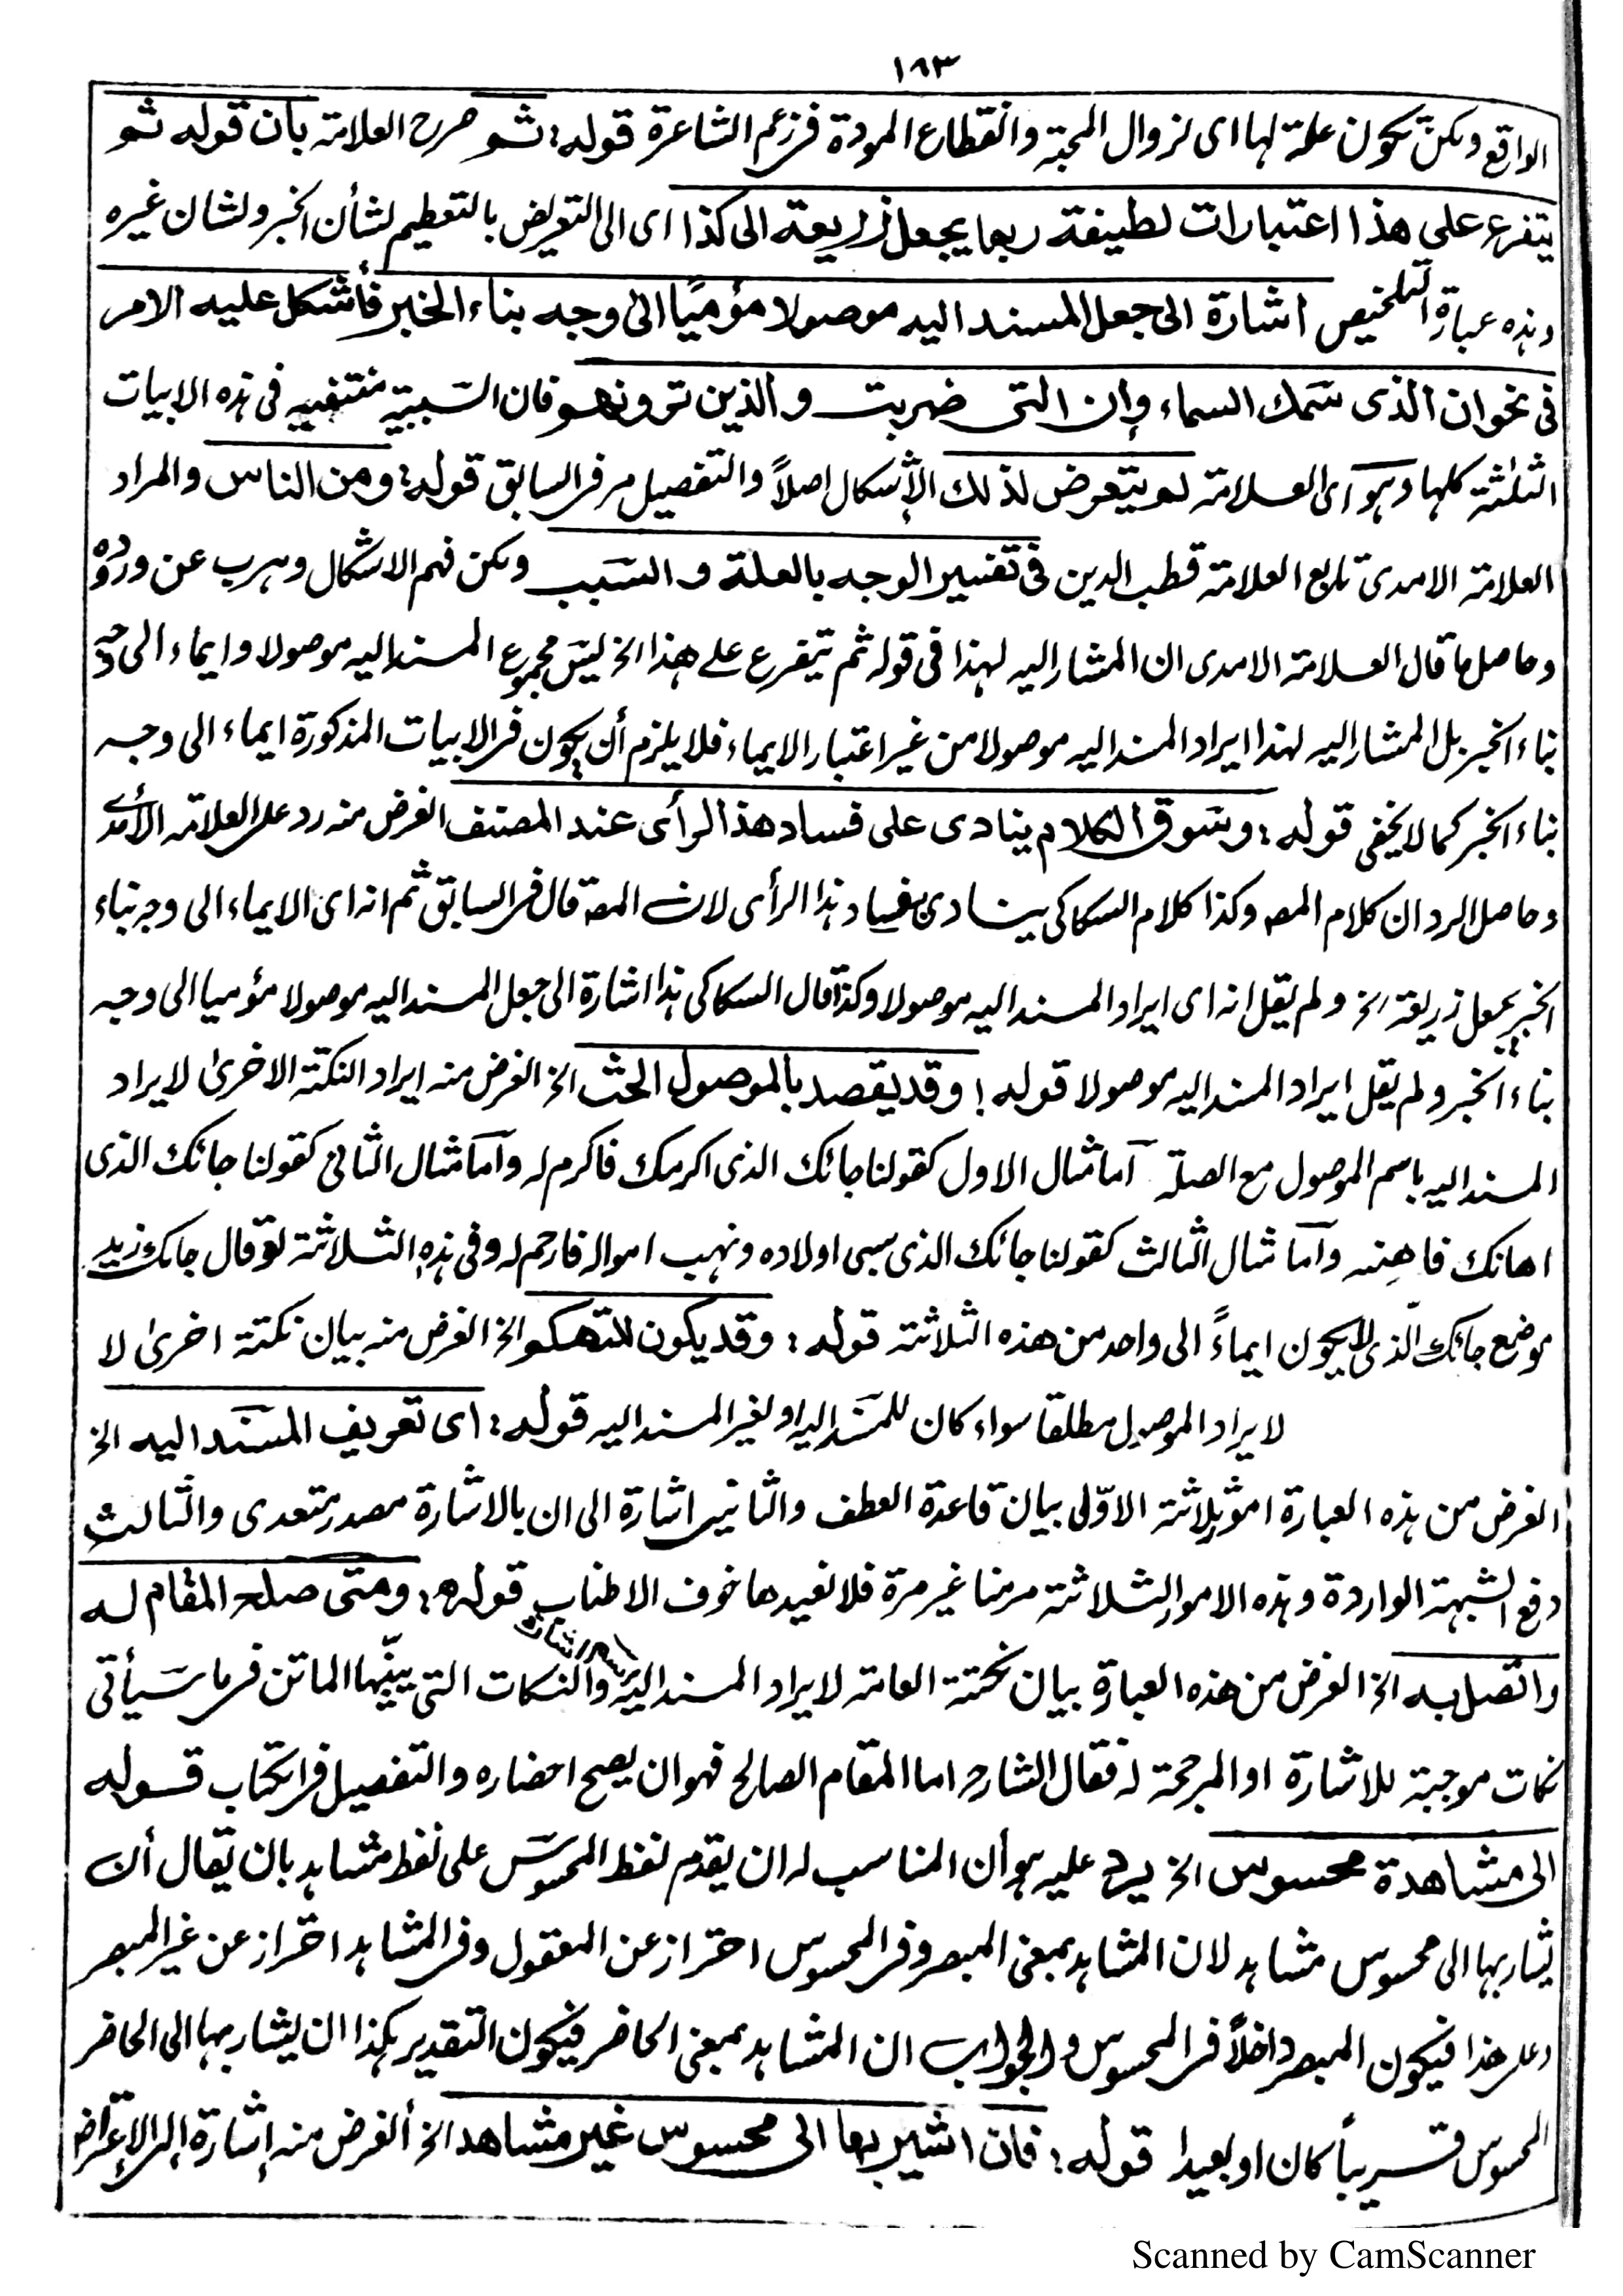 ١٨٣
الواقع ولكن تكون علة لها اى لزوال المحبة وانقطاع المودة فى زعم الشاعرة قوله: ثم صرح العلامة بأن قوله ثم
يتفرع على هذا اعتبارات لطيفة ربما يجعل ذريعة الى كذا اى الى التعريض بالتعظيم لشأن الخبر ولشان غيره
وهذه عبارة التلخيص اشارة الى جعل المسند اليه موصولا مؤميًا الى وجه بناء الخبر فأشكل عليه الامر
فى نحو ان الذى سَمك السماء وان التى ضربت والذين ترونهم فان السَببية منتفيه فى هذه الابيات
الثلثة كلها وهو اى العلامة لم يتعرض لذلك الأشكال اصلاً والتفصيل مر فى السابق قوله: ومن الناس والمراد
العلامة الامدى تابع العلامة قطب الدين فى تفسير الوجه بالعلة و السَبب ولكن فهم الاشكال وهرب عن وروده
وحاصل ما قال العلامة الامدى ان المشار اليه لهذا فى قوله ثم يتفرع على هذا الخ ليسَ مجموع المسند اليه موصولا وايماء الى وجه
بناء الخبر بل المشار اليه لهذا ايراد المسند اليه موصولا من غير اعتبار الايماء فلا يلزم أن يكون فى الابيات المذكورة ايماء الى وجه
بناء الخبر كما لا يخفى قوله: وسَوق الكلام ينادى على فساد هذا الرأى عند المصنف الغرض منه رد على العلامة الأمدى
وحاصل الرد ان كلام المصـ وكذا كلام السكاكى ينادى بفساد هذا الرأى لان المصـ قال فى السابق ثم انه اى الايماء الى وجه بناء
الخبر يجعل زريعة الخ ولم يقل انه اى ايراد المسند اليه موصولا وكذا قال السكاكى هذا اشارة الى جعل المسند اليه موصولا مؤميا الى وجه
بناء الخبر ولم يقل ايراد المسند اليه موصولا قوله: وقد يقصد بالموصول الحث الخ الغرض منه ايراد النكتة الاخرىٰ لايراد
المسند اليه باسم الموصول مع الصلة آما مثال الاول كقولنا جائك الذى اكرمك فاكرم له وآما مثال الثانى كقولنا جائك الذى
اهانك فاهِنه وآما مثال الثالث كقولنا جائك الذى سبى اولاده ونهب امواله فارحم له وفى هذه الثلاثة لو قال جاءك زيد
موضع جائك الذى لا يكون ايماءً الى واحد من هذه الثلاثة قوله: وقد يكون للتهكم الخ الغرض منه بيان نكتة اخرىٰ لا
لايراد الموصول مطلقا سواء كان للمسَند اليه او لغير المسند اليه قوله: اى تعريف المسَند اليه الخ
الغرض من هذه العبارة امور ثلاثة الاوّلى بيان قاعدة العطف والثانية اشارة الى ان بالاشارة مصدر متعدى والثالث
دفع الشبهة الواردة وهذه الامور الثلاثة مر منا غير مرة فلا نعيدها خوف الاطناب قوله: ومتى صلح المقام له
واتصل به الخ الغرض من هذه العبارة بيان نكتة العامة لايراد المسند اليه اسم اشارة والنكات التى يبيّنها الماتن فى ما سَيأتى
نكات موجبة للاشارة او المرجحة له فقال الشارح اما المقام الصالح فهو ان يصح احضاره والتفصيل فى الكتاب قوله
الى مشاهدة محسوس الخ يرد عليه هو أن المناسب له ان يقدم لفظ المحسوسَ على لفظ مشاهد بان يقال أن
يشار بها الى محسوس مشاهد لان المشاهد بمعنى المبصر وفى المحسوس احتراز عن المعقول وفى المشاهد احتراز عن غير المبصر
وعلى هذا فيكون المبصر داخلاً فى المحسوس والجواب ان المشاهد بمعنى الحاضر فيكون التقدير هكذا ان يشار بها الى الحاضر
المحسوس قريباً كان او بعيدا قوله: فان اشير بها الى محسوس غير مشاهد الخ ألغرض منه إشارة إلى الإعتراض
Scanned by CamScanner